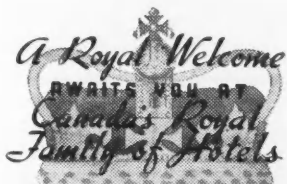 A Royal Welcome
AWAITS YOU AT
Canada's Royal
Family of Hotels